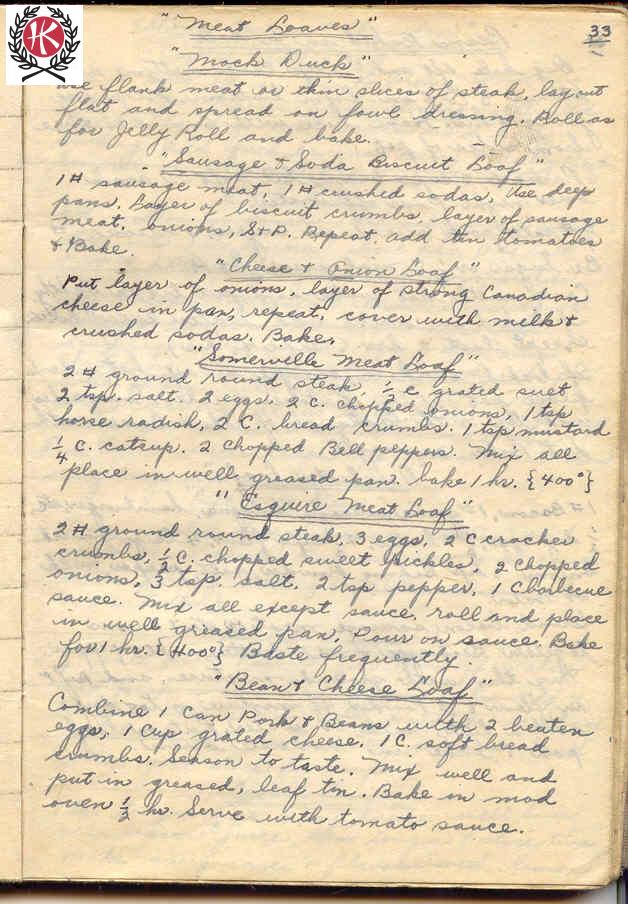 33
"Meat Loaves"
"Mock Duck"
use flank meat or thin slices of steak, lay out
flat and spread on fowl dressing. Roll as
for Jelly Roll and bake.
"Sausage & Soda Biscuit Loaf"
1# sausage meat, 1# crushed sodas, Use deep
pans. Layer of biscuit crumbs, layer of sausage
meat, onions, S+P. Repeat. add tin tomatoes
& Bake.
"Cheese & Onion Loaf"
Put layer of onions, layer of strong Canadian
cheese in pan, repeat, cover with milk &
crushed sodas. Bake.
"Somerville Meat Loaf"
2# ground round steak, 1/2 c grated suet
2 tsp. salt. 2 eggs. 2 C. chopped onions, 1 tsp
horse radish, 2 C. bread crumbs. 1 tsp mustard
1/4 C. catsup. 2 chopped Bell peppers. Mix all
place in well greased pan. bake 1 hr. {400°}
"Esquire Meat Loaf"
2# ground round steak, 3 eggs, 2 C cracker
crumbs, 1/2 C. chopped sweet pickles, 2 chopped
onions, 3 tsp. salt, 2 tsp pepper, 1 C barbecue
sauce. Mix all except sauce, roll and place
in well greased pan. Pour on sauce. Bake
for 1 hr. {400°} Baste frequently.
"Bean & Cheese Loaf"
Combine 1 Can Pork & Beans with 2 beaten
eggs, 1 Cup grated cheese, 1 C. soft bread
crumbs. Season to taste. Mix well and
put in greased, loaf tin. Bake in mod
oven 1/2 hr. Serve with tomato sauce.